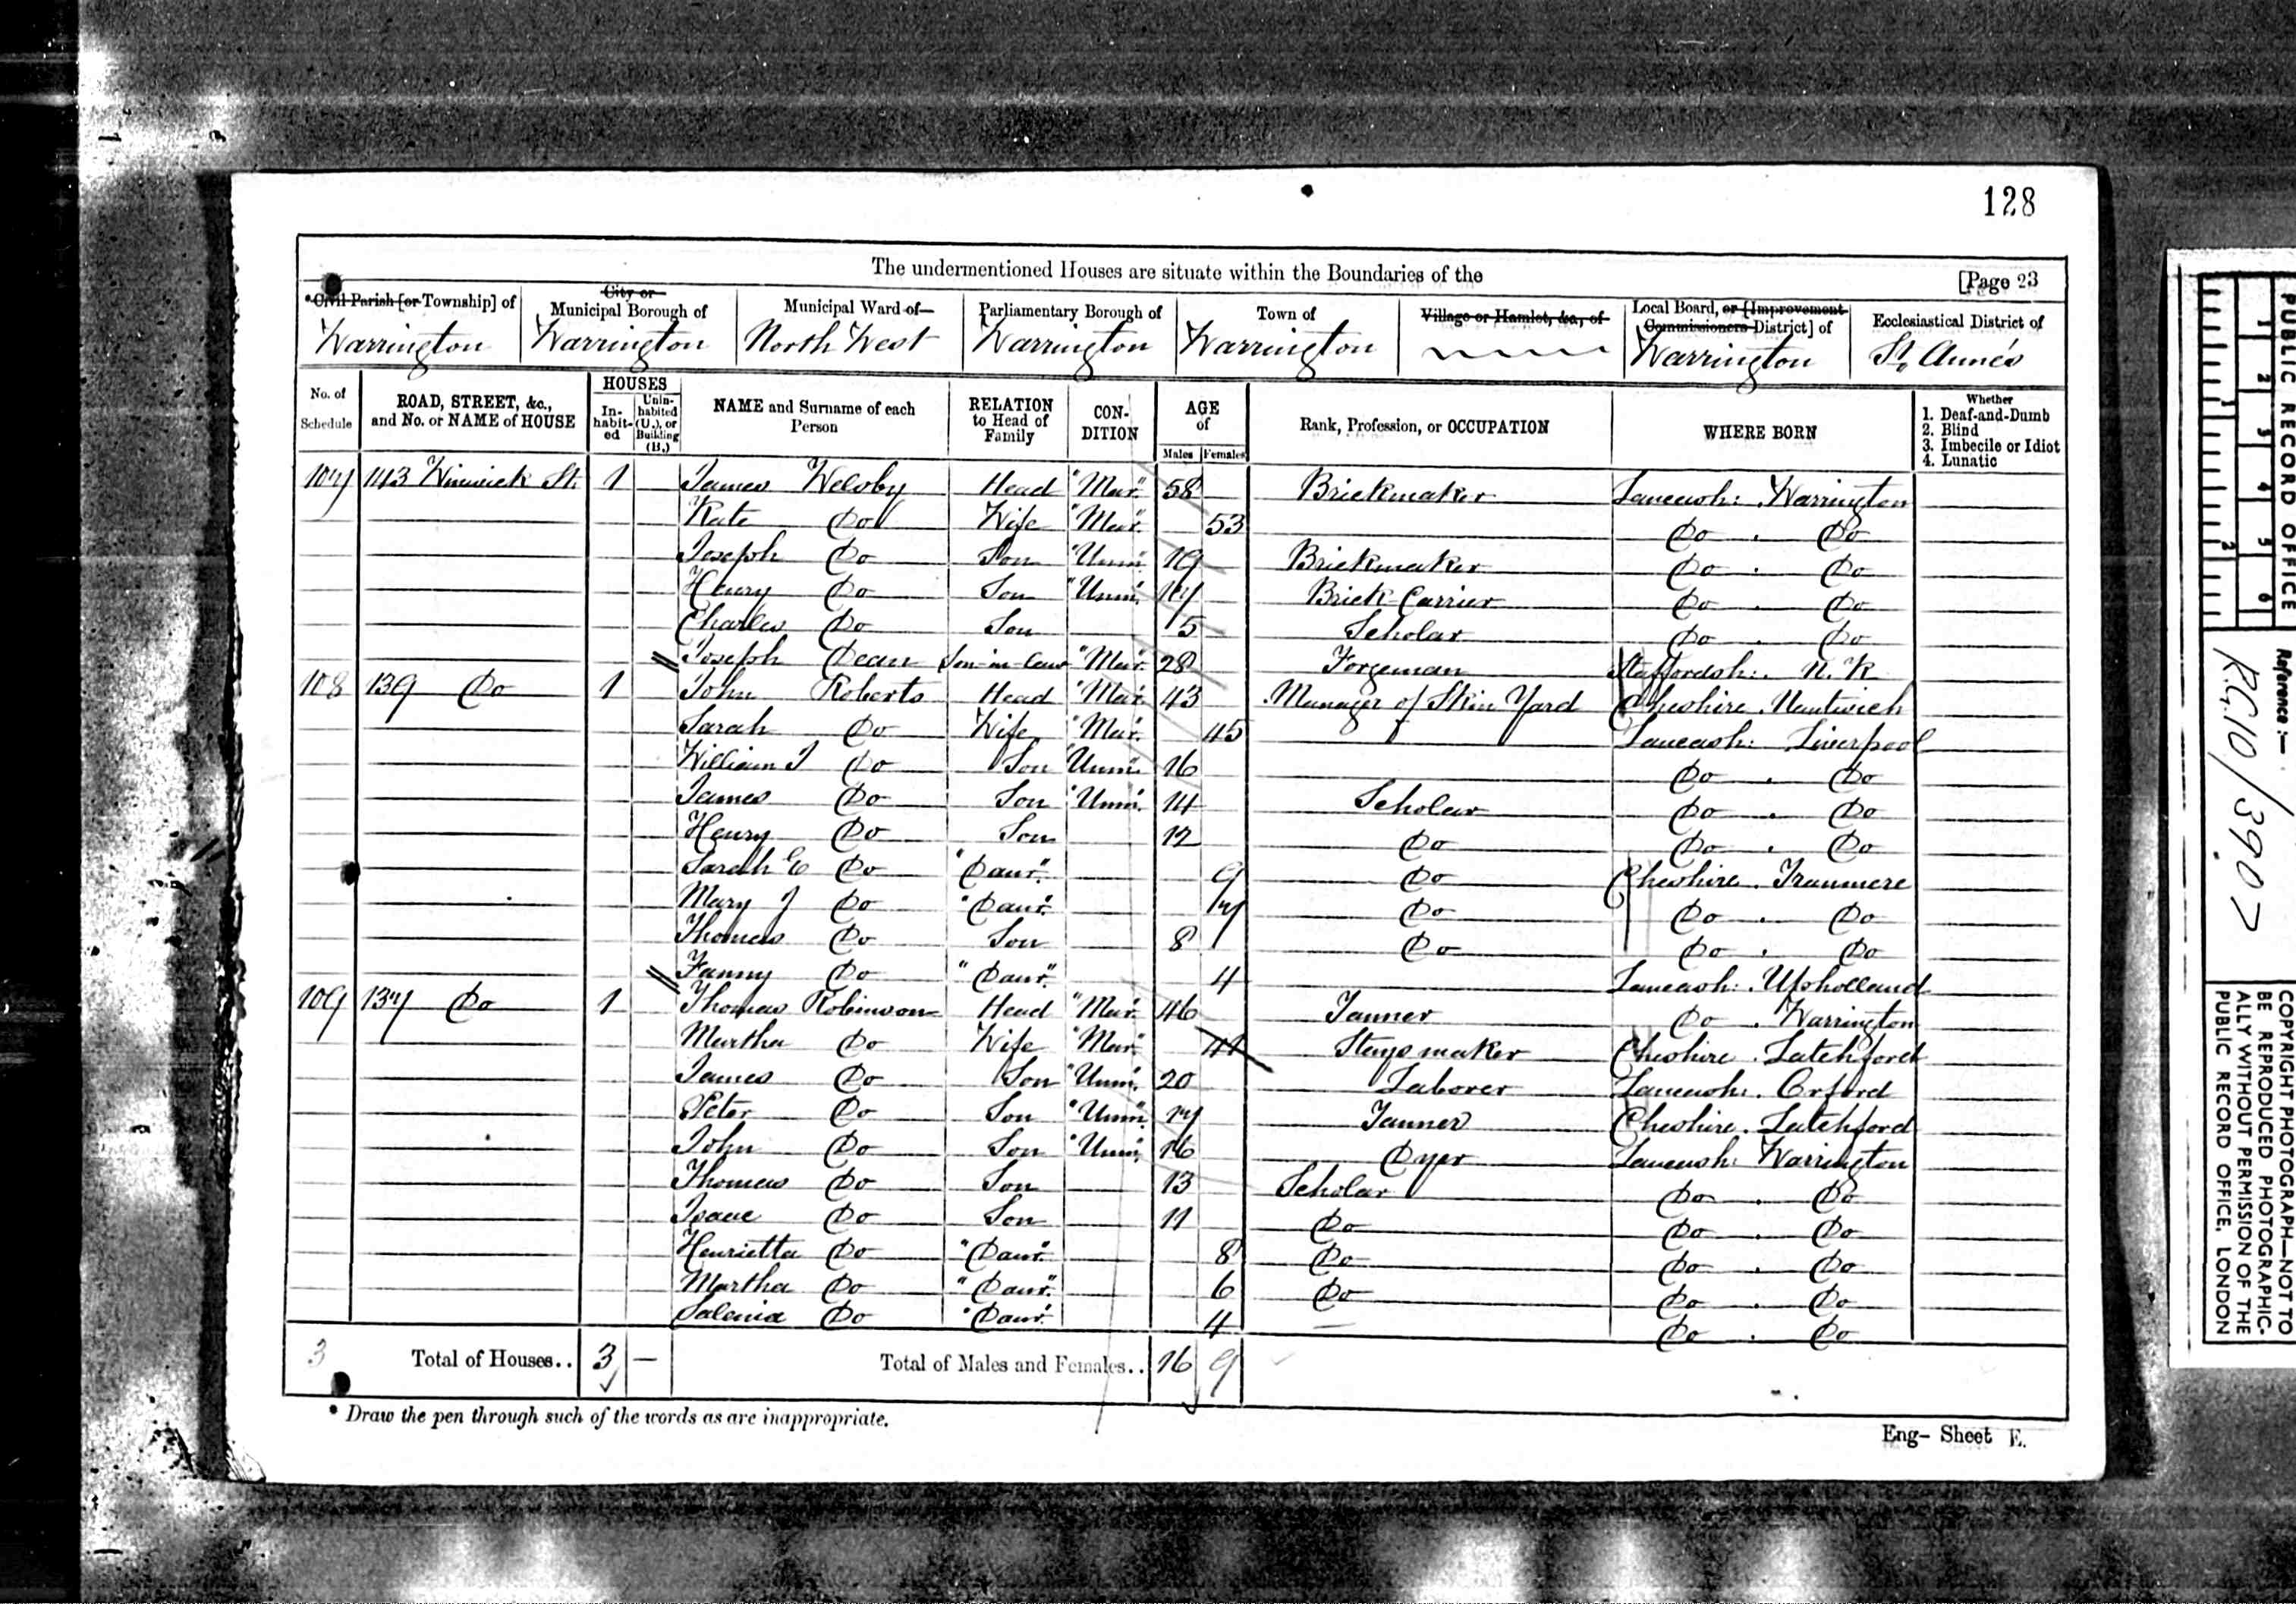 128
The undermentioned Houses are situate within the Boundaries of the [Page 23
*Civil Parish [or Township] of City or Municipal Borough of Municipal Ward of— Parliamentary Borough of Town of Village or Hamlet, &c., of Local Board, or [Improvement Commissioners District] of Ecclesiastical District of
Warrington Warrington North West Warrington Warrington Warrington St. Anne's
No. of Schedule ROAD, STREET, &c., and No. or NAME of HOUSE HOUSES Inhabited Uninhabited (U.), or Building (B.) NAME and Surname of each Person RELATION to Head of Family CONDITION AGE of Males Females Rank, Profession, or OCCUPATION WHERE BORN Whether 1. Deaf-and-Dumb 2. Blind 3. Imbecile or Idiot 4. Lunatic
107 143 Winwick St 1 James Welsby Head "Mar." 58 Brickmaker Lancash: Warrington
Kate Do Wife "Mar." 53 Do . Do
Joseph Do Son "Unm." 19 Brickmaker Do . Do
Henry Do Son "Unm." 17 Brick Carrier Do . Do
Charles Do Son 5 Scholar Do . Do
Joseph Dean Son-in-Law "Mar. 28 Forgeman Staffordsh: . N. K
108 139 Do 1 John Roberts Head "Mar. 43 Manager of Skin Yard Cheshire . Nantwich
Sarah Do Wife "Mar. 45 Lancash: Liverpool
William J Do Son "Unm." 16 Do . Do
James Do Son "Unm. 14 Scholar Do . Do
Henry Do Son 12 Do Do . Do
Sarah E Do "Daur." 9 Do Cheshire . Tranmere
Mary J Do "Daur." 7 Do Do . Do
Thomas Do Son 8 Do Do . Do
Fanny Do "Daur." 4 Lancash: . Upholland
109 137 Do 1 Thomas Robinson Head "Mar. 46 Tanner Do . Warrington
Martha Do Wife "Mar." Stays maker Cheshire . Latchford
James Do Son "Unm. 20 Laborer Lancash: . Orford
Peter Do Son "Unm." 17 Tanner Cheshire . Latchford
John Do Son "Unm." 16 Dyer Lancash: Warrington
Thomas Do Son 13 Scholar Do . Do
Isaac Do Son 11 Do Do . Do
Henrietta Do "Daur." 8 Do Do . Do
Martha Do "Daur." 6 Do Do . Do
Salenia Do "Daur." 4 — Do . Do
3 Total of Houses.. 3 — Total of Males and Females.. 16 9
* Draw the pen through such of the words as are inappropriate.
Eng- Sheet E.
PUBLIC RECORD OFFICE
1 2 3 4 5 6
1 2
Reference :—
R.G. 10/3907
COPYRIGHT PHOTOGRAPH—NOT TO
BE REPRODUCED PHOTOGRAPHIC-
ALLY WITHOUT PERMISSION OF THE
PUBLIC RECORD OFFICE, LONDON